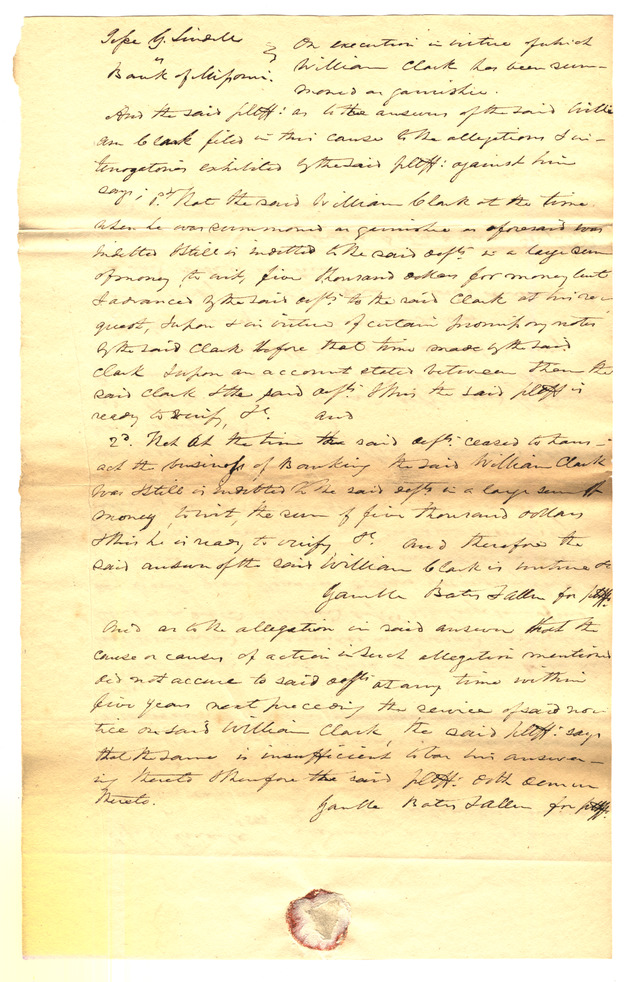 Jesse G. Lindell } On execution in virtue of which
vs William Clark has been sum-
Bank of Missouri. moned as garnishee.
And the said pltff: as to the answer of the said Willi
am Clark filed in this cause to the allegations & in-
terrogatories exhibited by the said pltff: against him
says; 1st That the said William Clark at the time
when he was summoned as garnishee as aforesaid was
indebted & still is indebted to the said defts in a large sum
of money, to wit, five thousand dollars for money lent
& advanced by the said defts to the said Clark at his re-
quest, & upon & in virtue of certain promissory notes
by the said Clark before that time made by the said
Clark & upon an account stated between them the
said Clark & the said defts & this the said pltff is
ready to verify, &c. and
2d. That at the time the said defts ceased to trans-
act the business of Banking the said William Clark
was & still is indebted to the said defts in a large sum of
money, to wit, the sum of five thousand dollars
& this he is ready to verify &c. And therefore the
said answer of the said William Clark is untrue &c
Gamble Bates & Allen for pltff.
And as to the allegation in said answer that the
cause or causes of action in such allegation mentioned
did not accrue to said defts at any time within
five years next preceding the service of said no-
tice on said William Clark, the said pltff: says
that the same is insufficient to bar his answer-
ing thereto & therefore the said pltff: doth demur
thereto.
Gamble Bates & Allen for pltff: